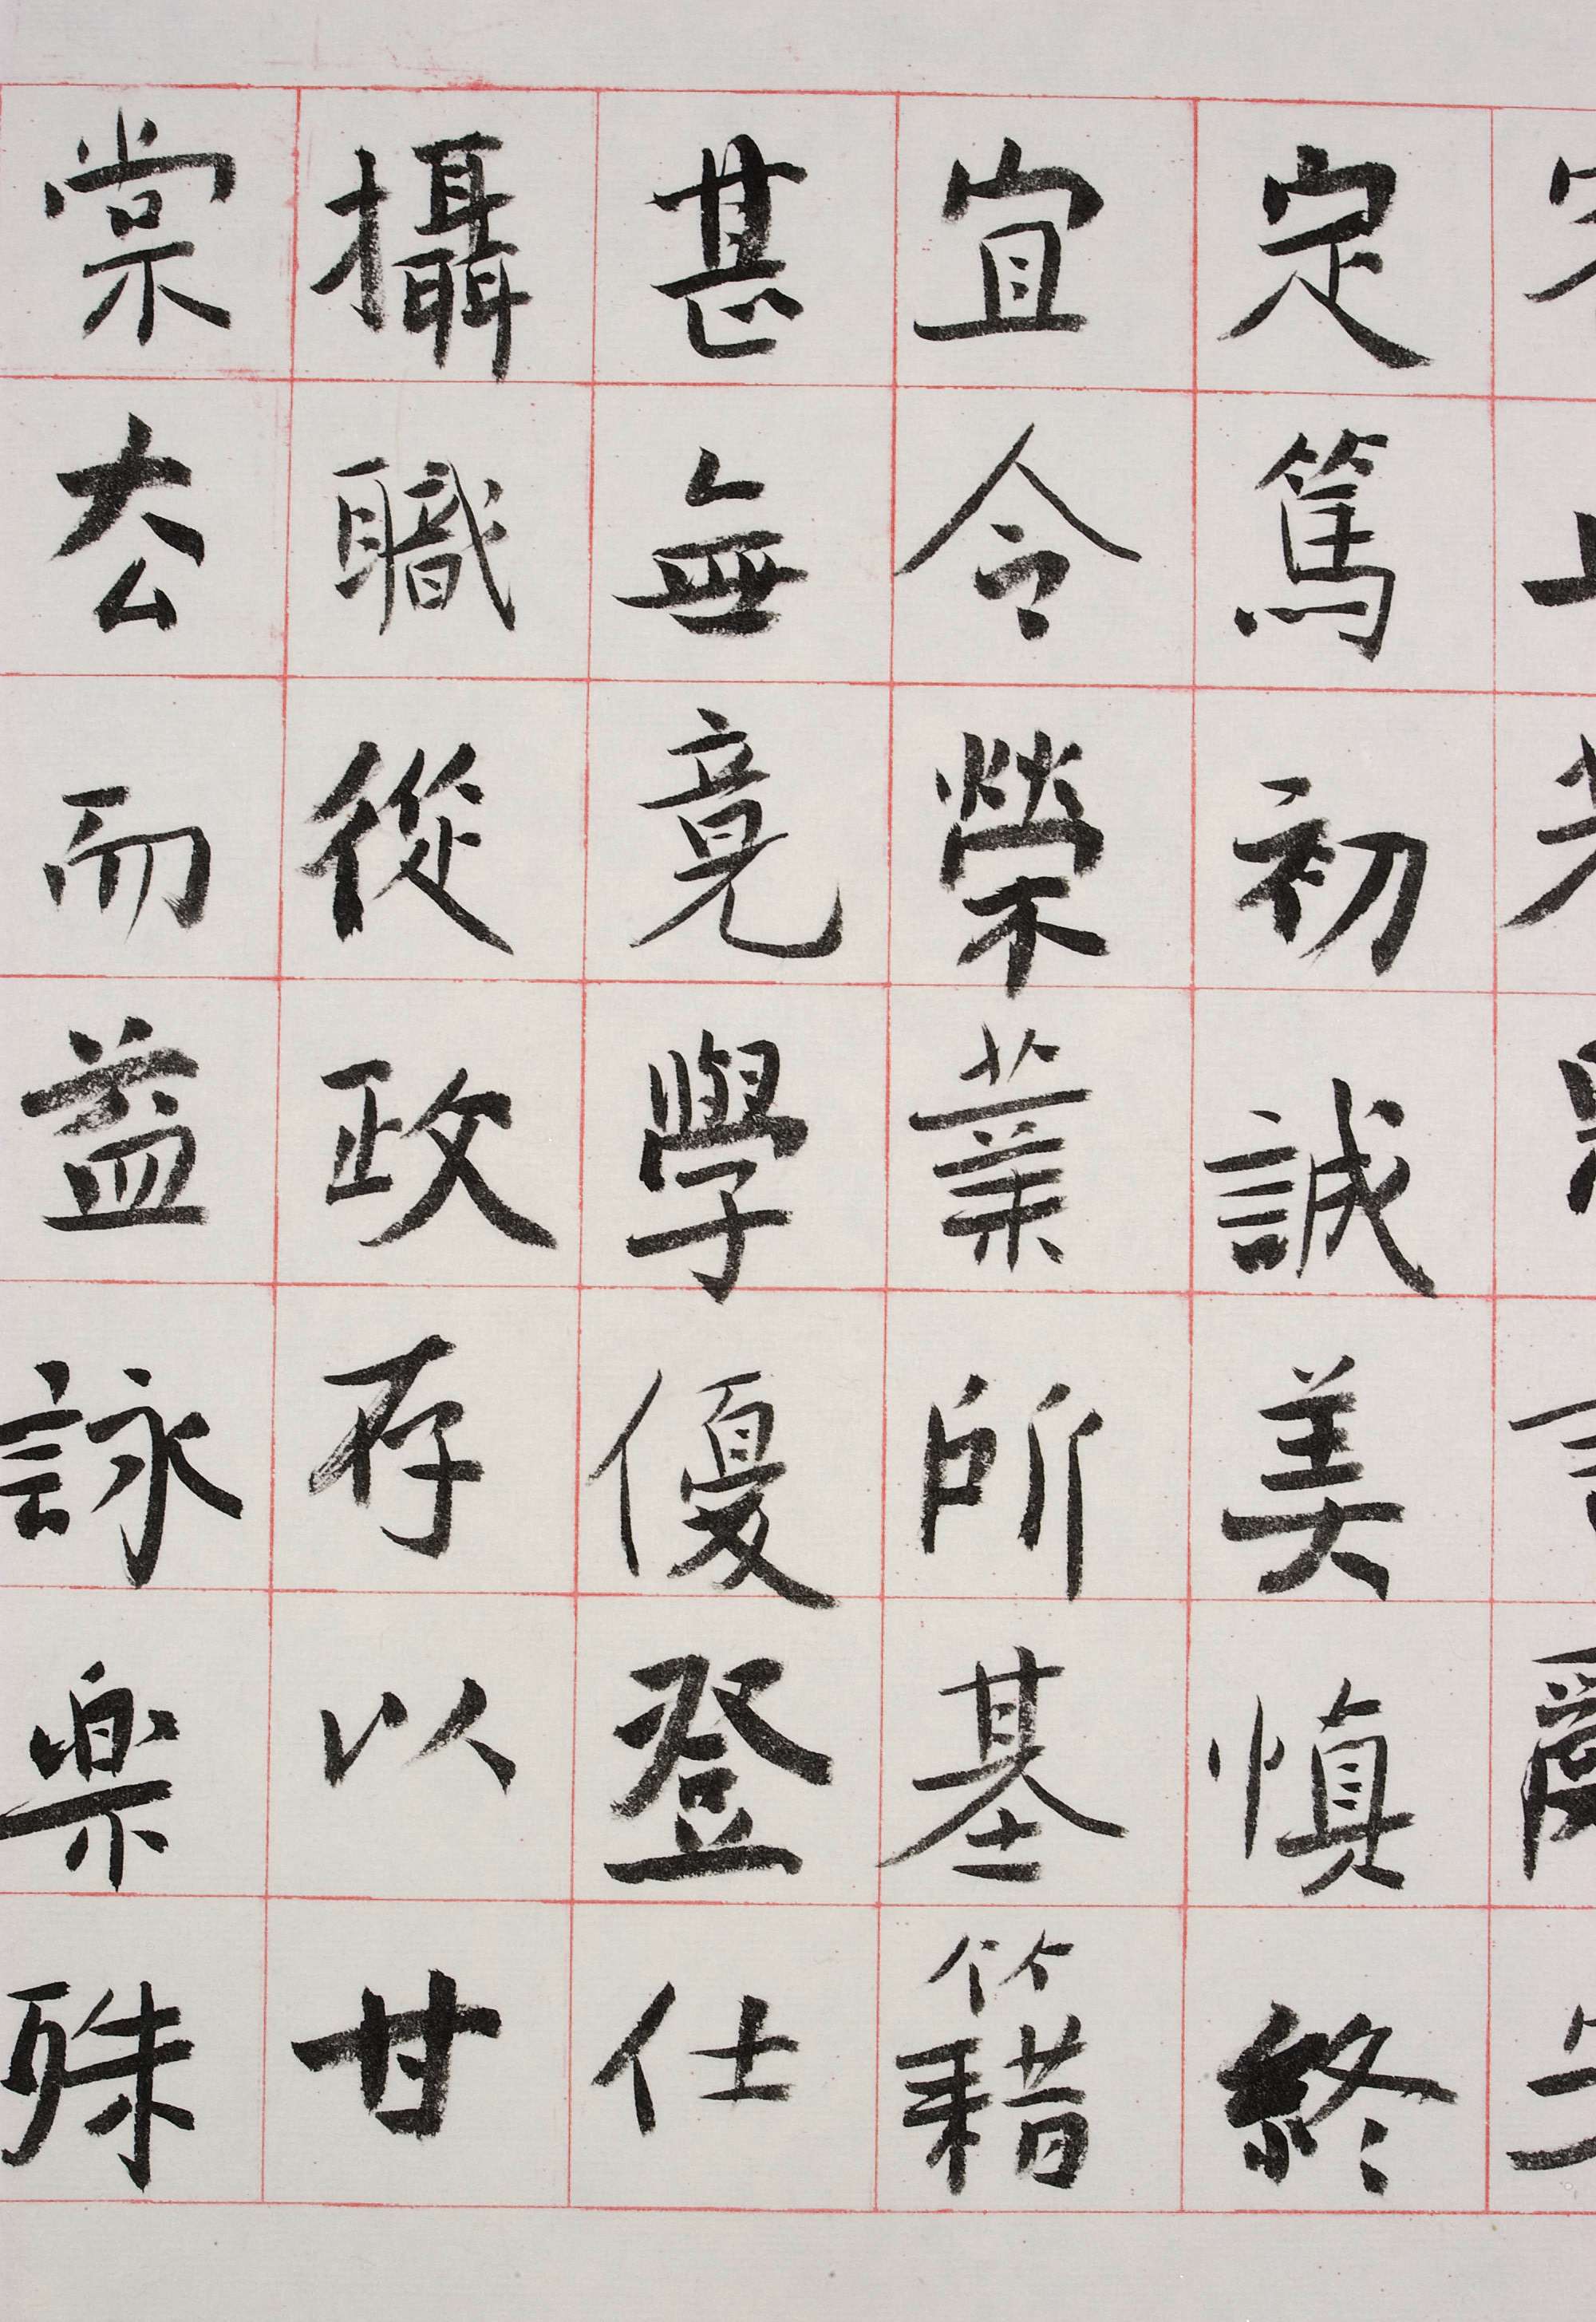 定篤初誠美慎終
宜令榮業所基籍
甚無竟學優登仕
攝職從政存以甘
棠去而益詠樂殊